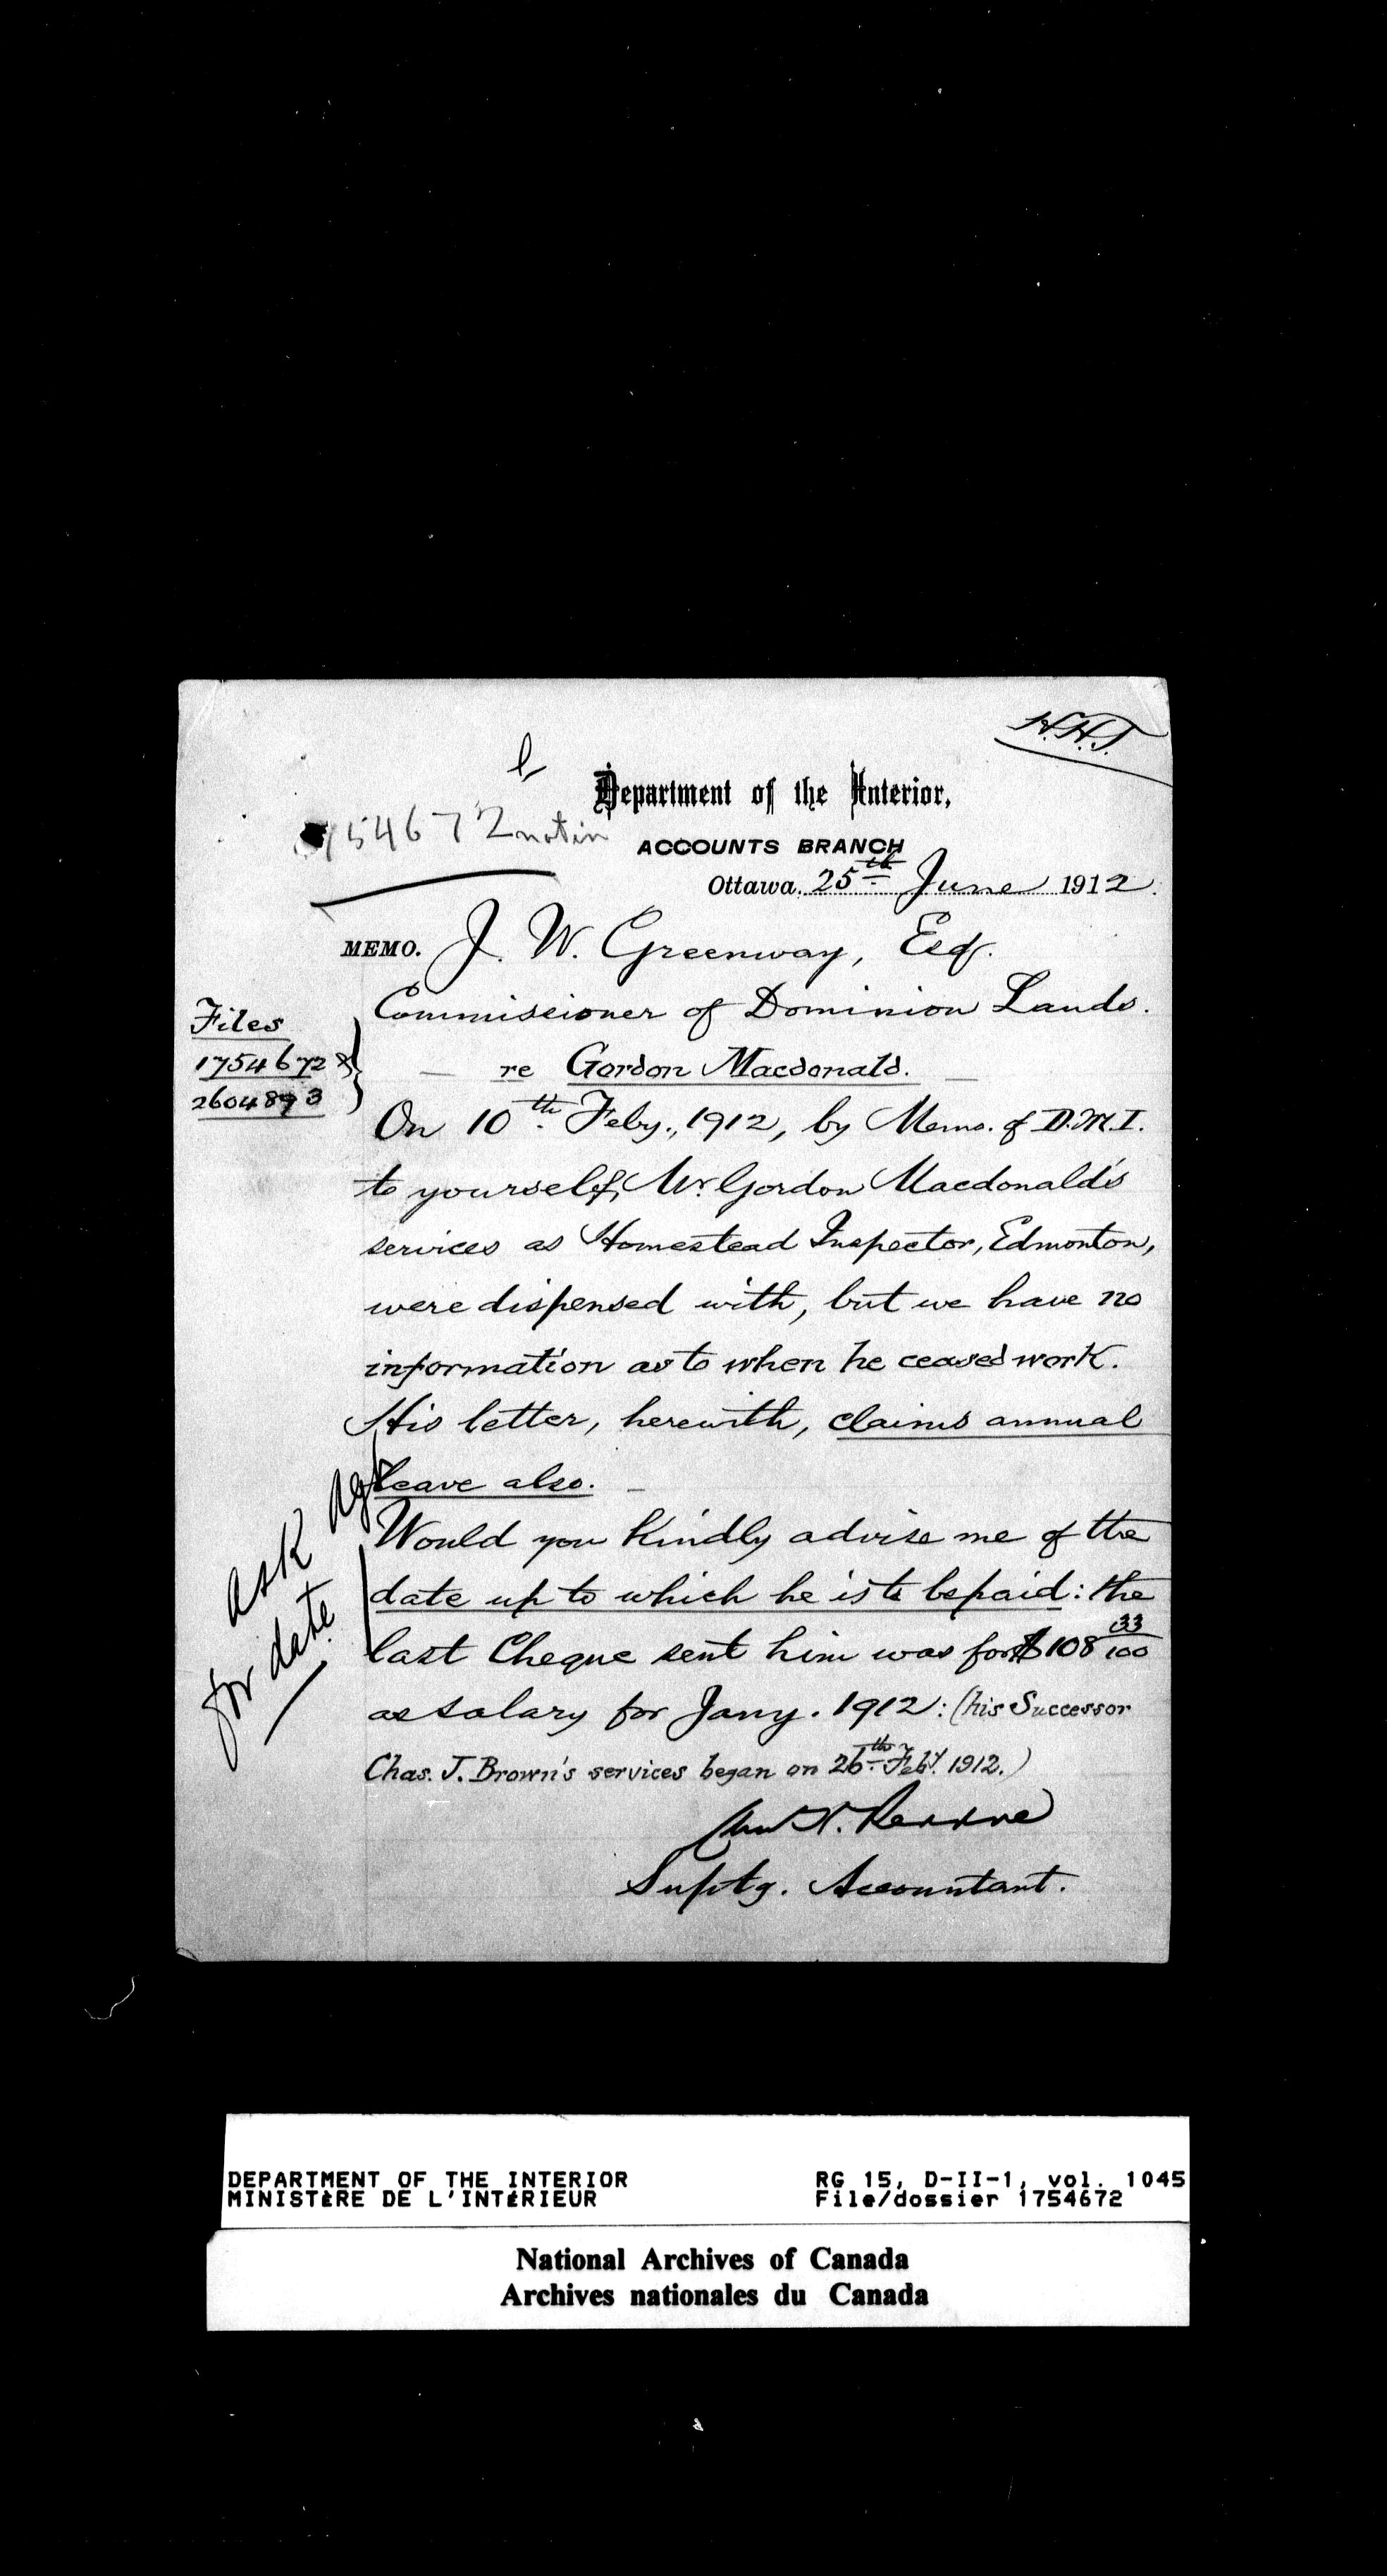 W.H.T.
Department of the Interior,
1754672 not in
ACCOUNTS BRANCH
Ottawa. 25th June 1912.
MEMO. J. W. Greenway, Esq.
Commissioner of Dominion Lands.
Files
1754672 X
2604893
— re Gordon Macdonald. —
On 10th Feby., 1912, by Memo. of D.M.I.
to yourself, Mr Gordon Macdonald's
services as Homestead Inspector, Edmonton,
were dispensed with, but we have no
information as to when he ceased work.
His letter, herewith, claims annual
leave also. —
ask Agt
for date
Would you kindly advise me of the
date up to which he is to be paid: the
last Cheque sent him was for $108 33/100
as salary for Jany. 1912: (his Successor
Chas. J. Brown's services began on 26th Feby. 1912.)
Suptg. Accountant.
DEPARTMENT OF THE INTERIOR
MINISTÈRE DE L'INTÉRIEUR
RG 15, D-II-1, vol. 1045
File/dossier 1754672
National Archives of Canada
Archives nationales du Canada